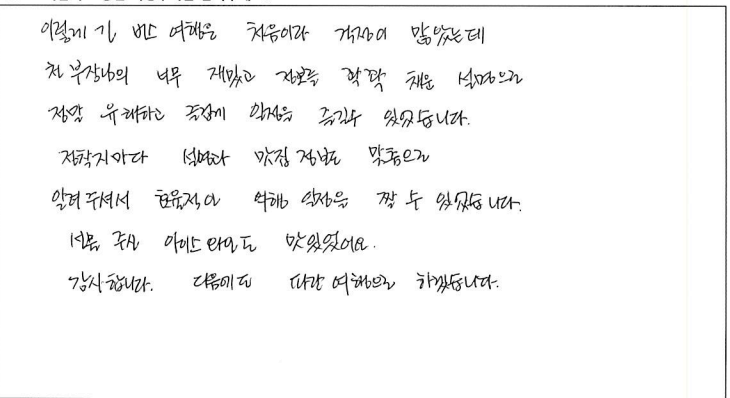 이렇게 긴 버스 여행은 처음이라 걱정이 많았는데
천부장님의 너무 재밌고 정보를 꽉꽉 채운 설명으로
정말 유쾌하고 즐겁게 일정을 즐길수 있었습니다.
정착지마다 설명과 맛집 정보도 맞춤으로
알려주셔서 효율적인 여행 일정을 짤 수 있었습니다.
선물 주신 아이스와인도 맛있었어요.
감사합니다. 다음에도 파란여행으로 하겠습니다.